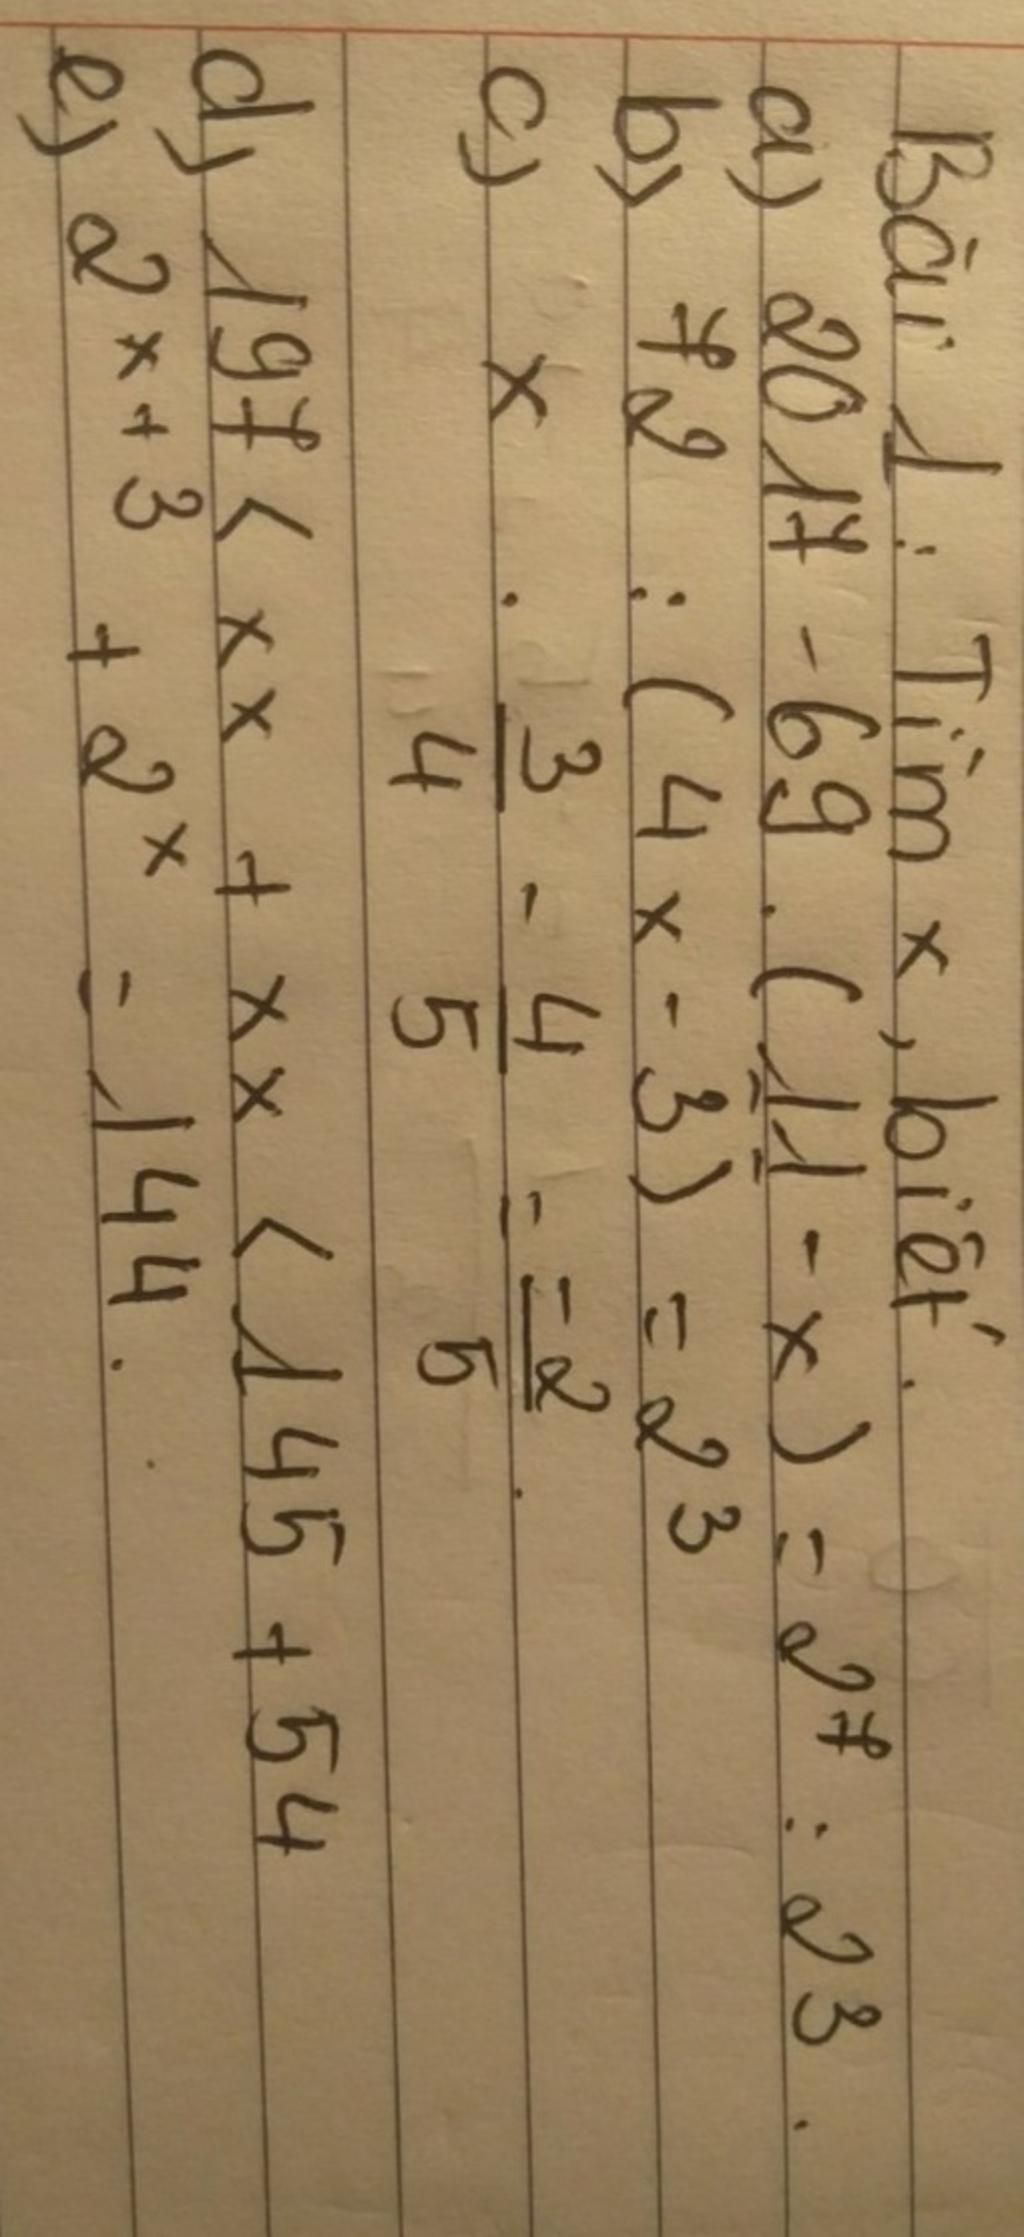 Bài 1: Tìm x, biết.
a) 2017 - 69 . (11 - x) = 2⁷ : 2³.
b) 72 : (4x - 3) = 2³
c) x . 3/4 - 4/5 = -2/5.
d) 197 < xx + xx < 145 + 54
e) 2ˣ⁺³ + 2ˣ = 144.